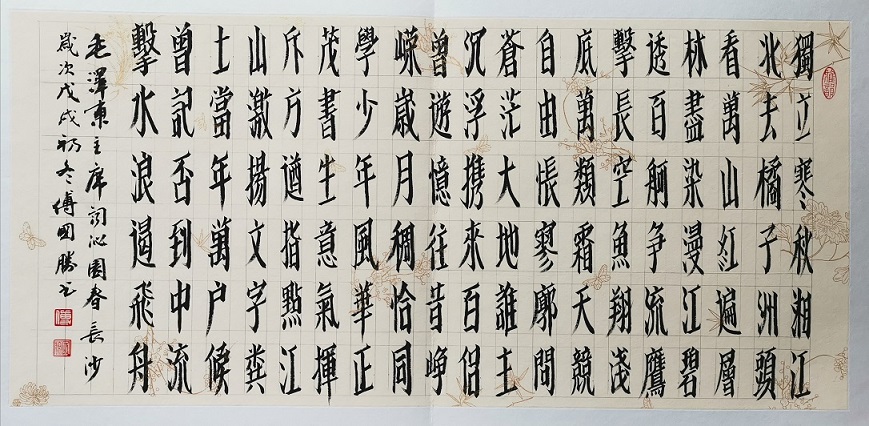 獨立寒秋湘江
北去橘子洲頭
看萬山紅遍層
林盡染漫江碧
透百舸争流鷹
擊長空魚翔淺
底萬類霜天競
自由悵寥廓問
蒼茫大地誰主
沉浮携來百侣
曾遊憶往昔崢
嶸歲月稠恰同
學少年風華正
茂書生意氣揮
斥方遒指點江
山激揚文字糞
土當年萬户候
曾記否到中流
擊水浪遏飛舟
毛澤東主席詞沁園春長沙
歲次戊戌初冬傅國勝书